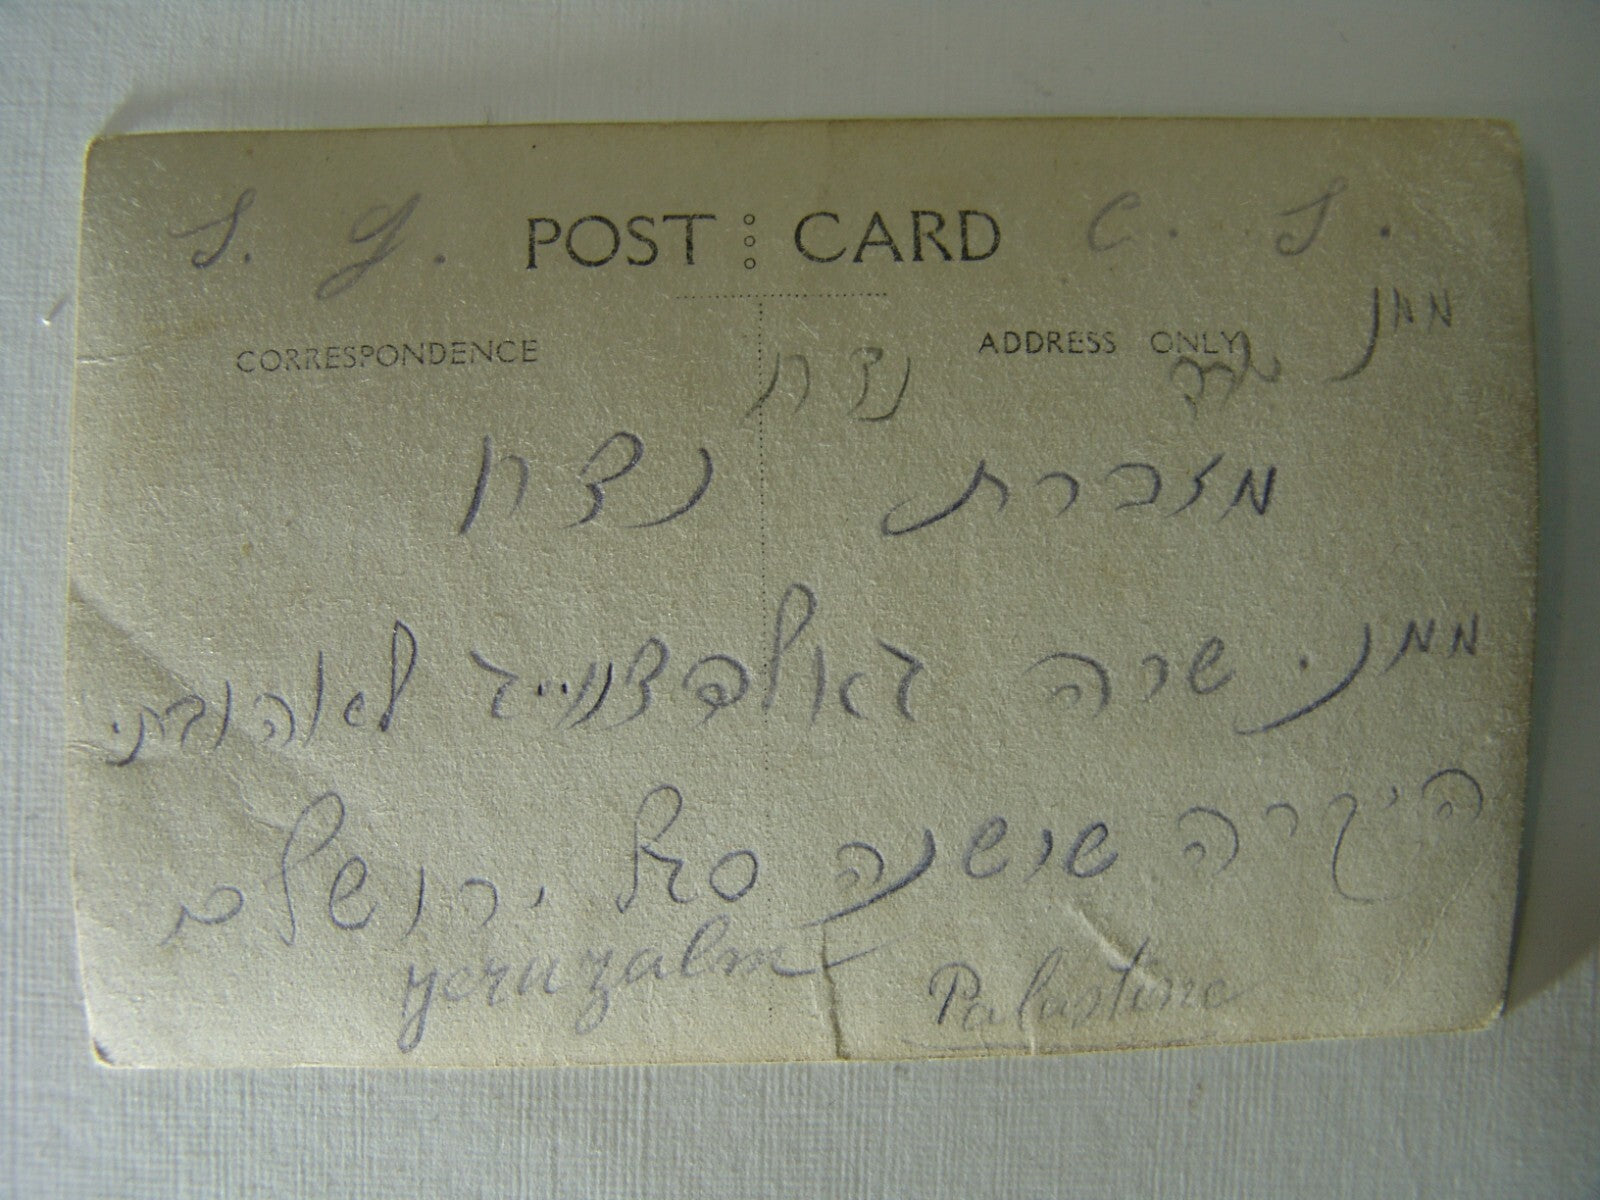 S. G. POST CARD C. S.
CORRESPONDENCE ADDRESS ONLY
ממן
נצח
מזכרת נצח
ממני שרה גאלדצווייג לאהובתי
היקרה שושנה סגל ירושלם
yeruzalm Palastine